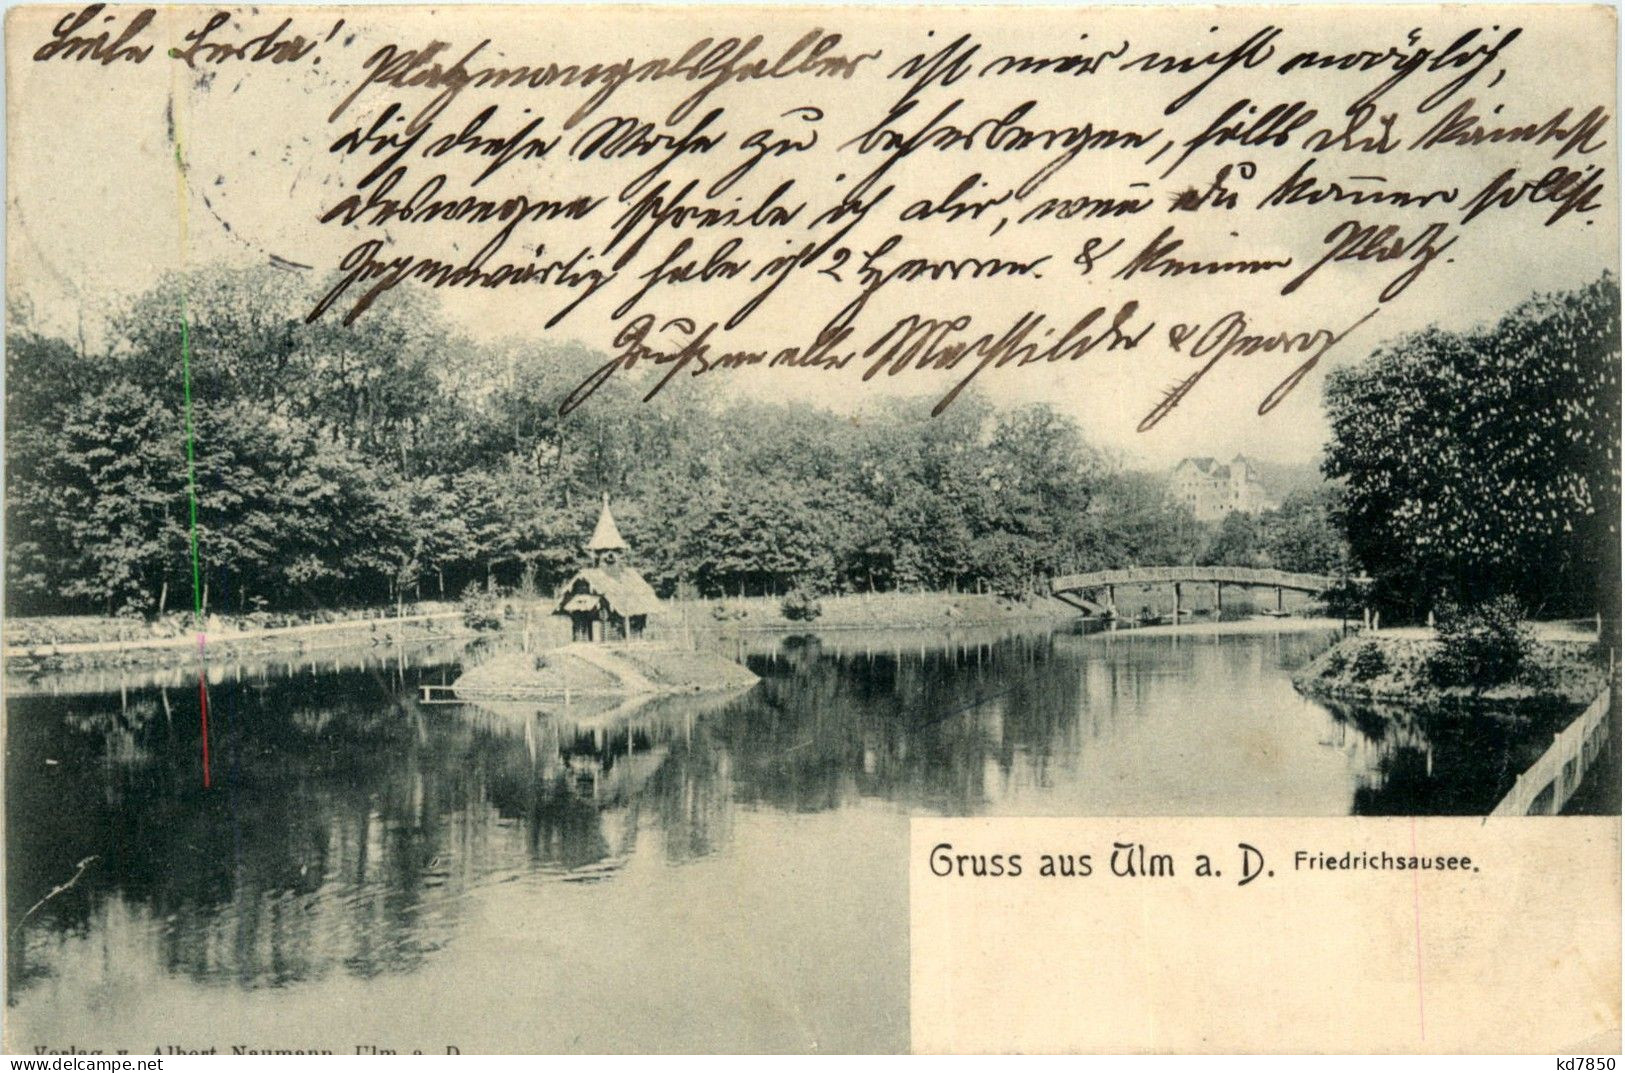 Liebe Berta!
Platzmangelshalber ist mir nicht möglich,
dich diese Woche zu beherbergen, falls du kämtest
deswegen schreibe ich dir, wen̄ du kom̄en sollst.
Gegenwärtig habe ich 2 Herren. & keinen Platz.
Gruß an alle Mathilde & Georg
Gruss aus Ulm a. D. Friedrichsausee.
Verlag v. Albert Naumann, Ulm a. D.
kd7850